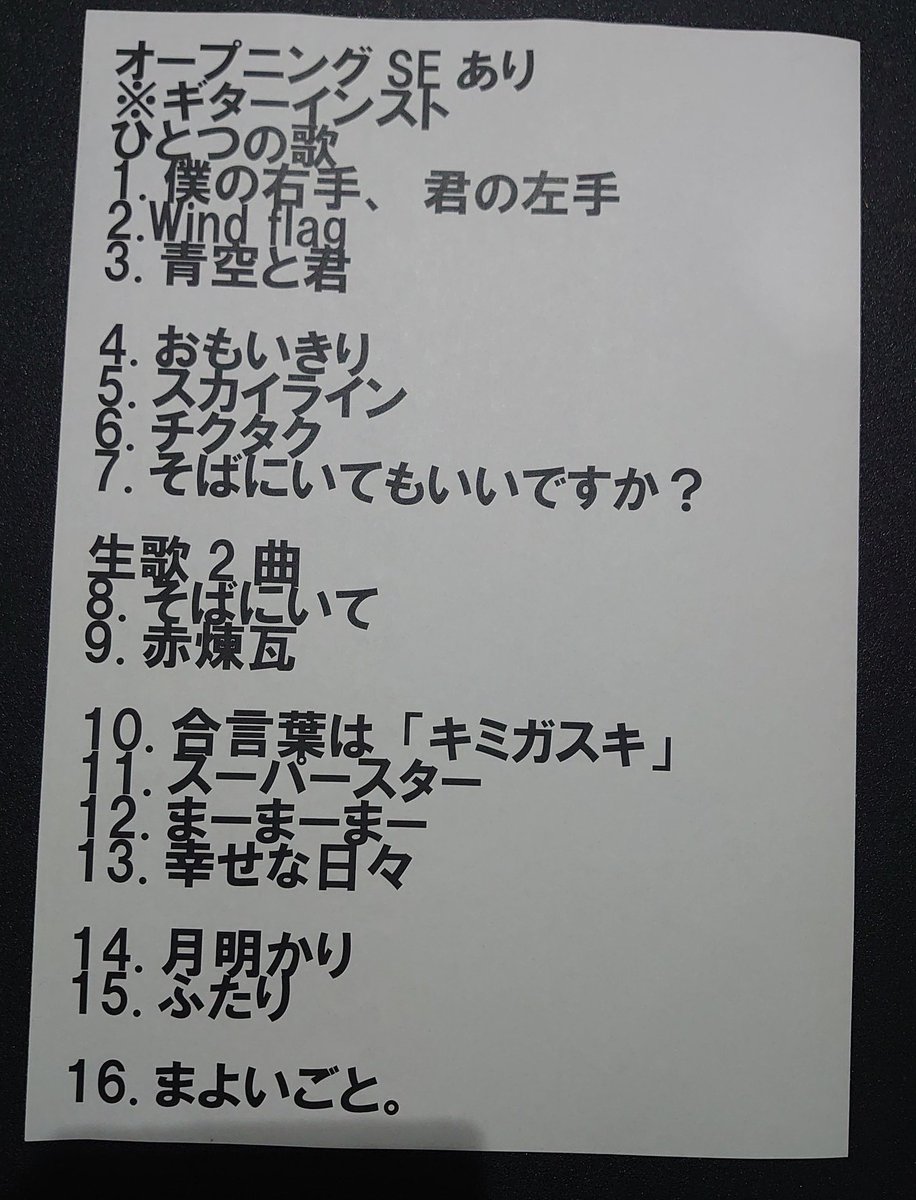 オープニング SE あり
※ギターインスト
ひとつの歌
1. 僕の右手、 君の左手
2.Wind flag
3. 青空と君
4. おもいきり
5. スカイライン
6. チクタク
7. そばにいてもいいですか？
生歌 2 曲
8. そばにいて
9. 赤煉瓦
10. 合言葉は「キミガスキ」
11. スーパースター
12. まーまーまー
13. 幸せな日々
14. 月明かり
15. ふたり
16. まよいごと。